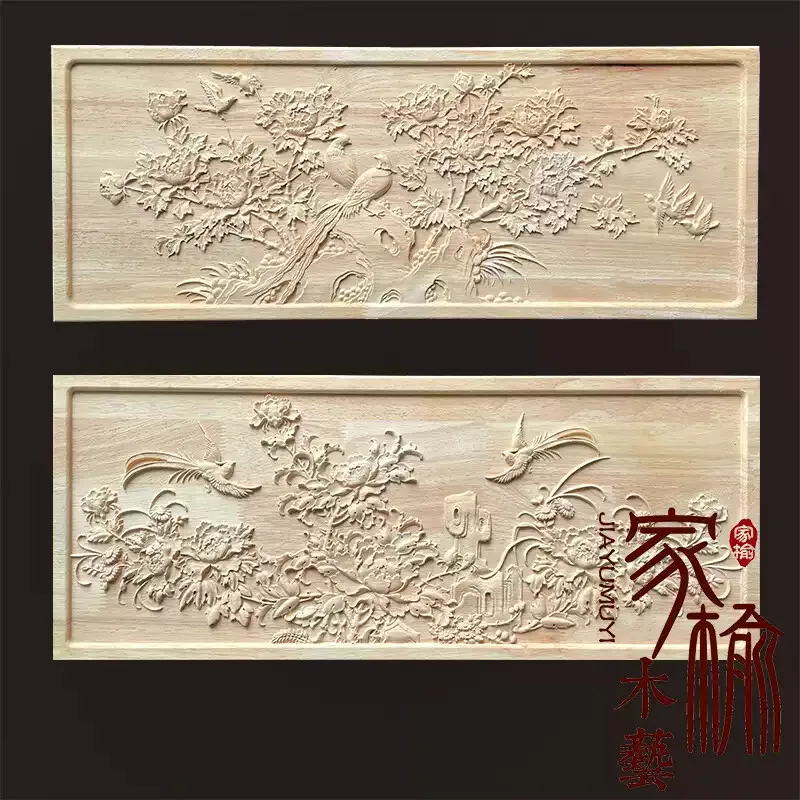 家榆
木藝
JIAYUMUYI
家榆